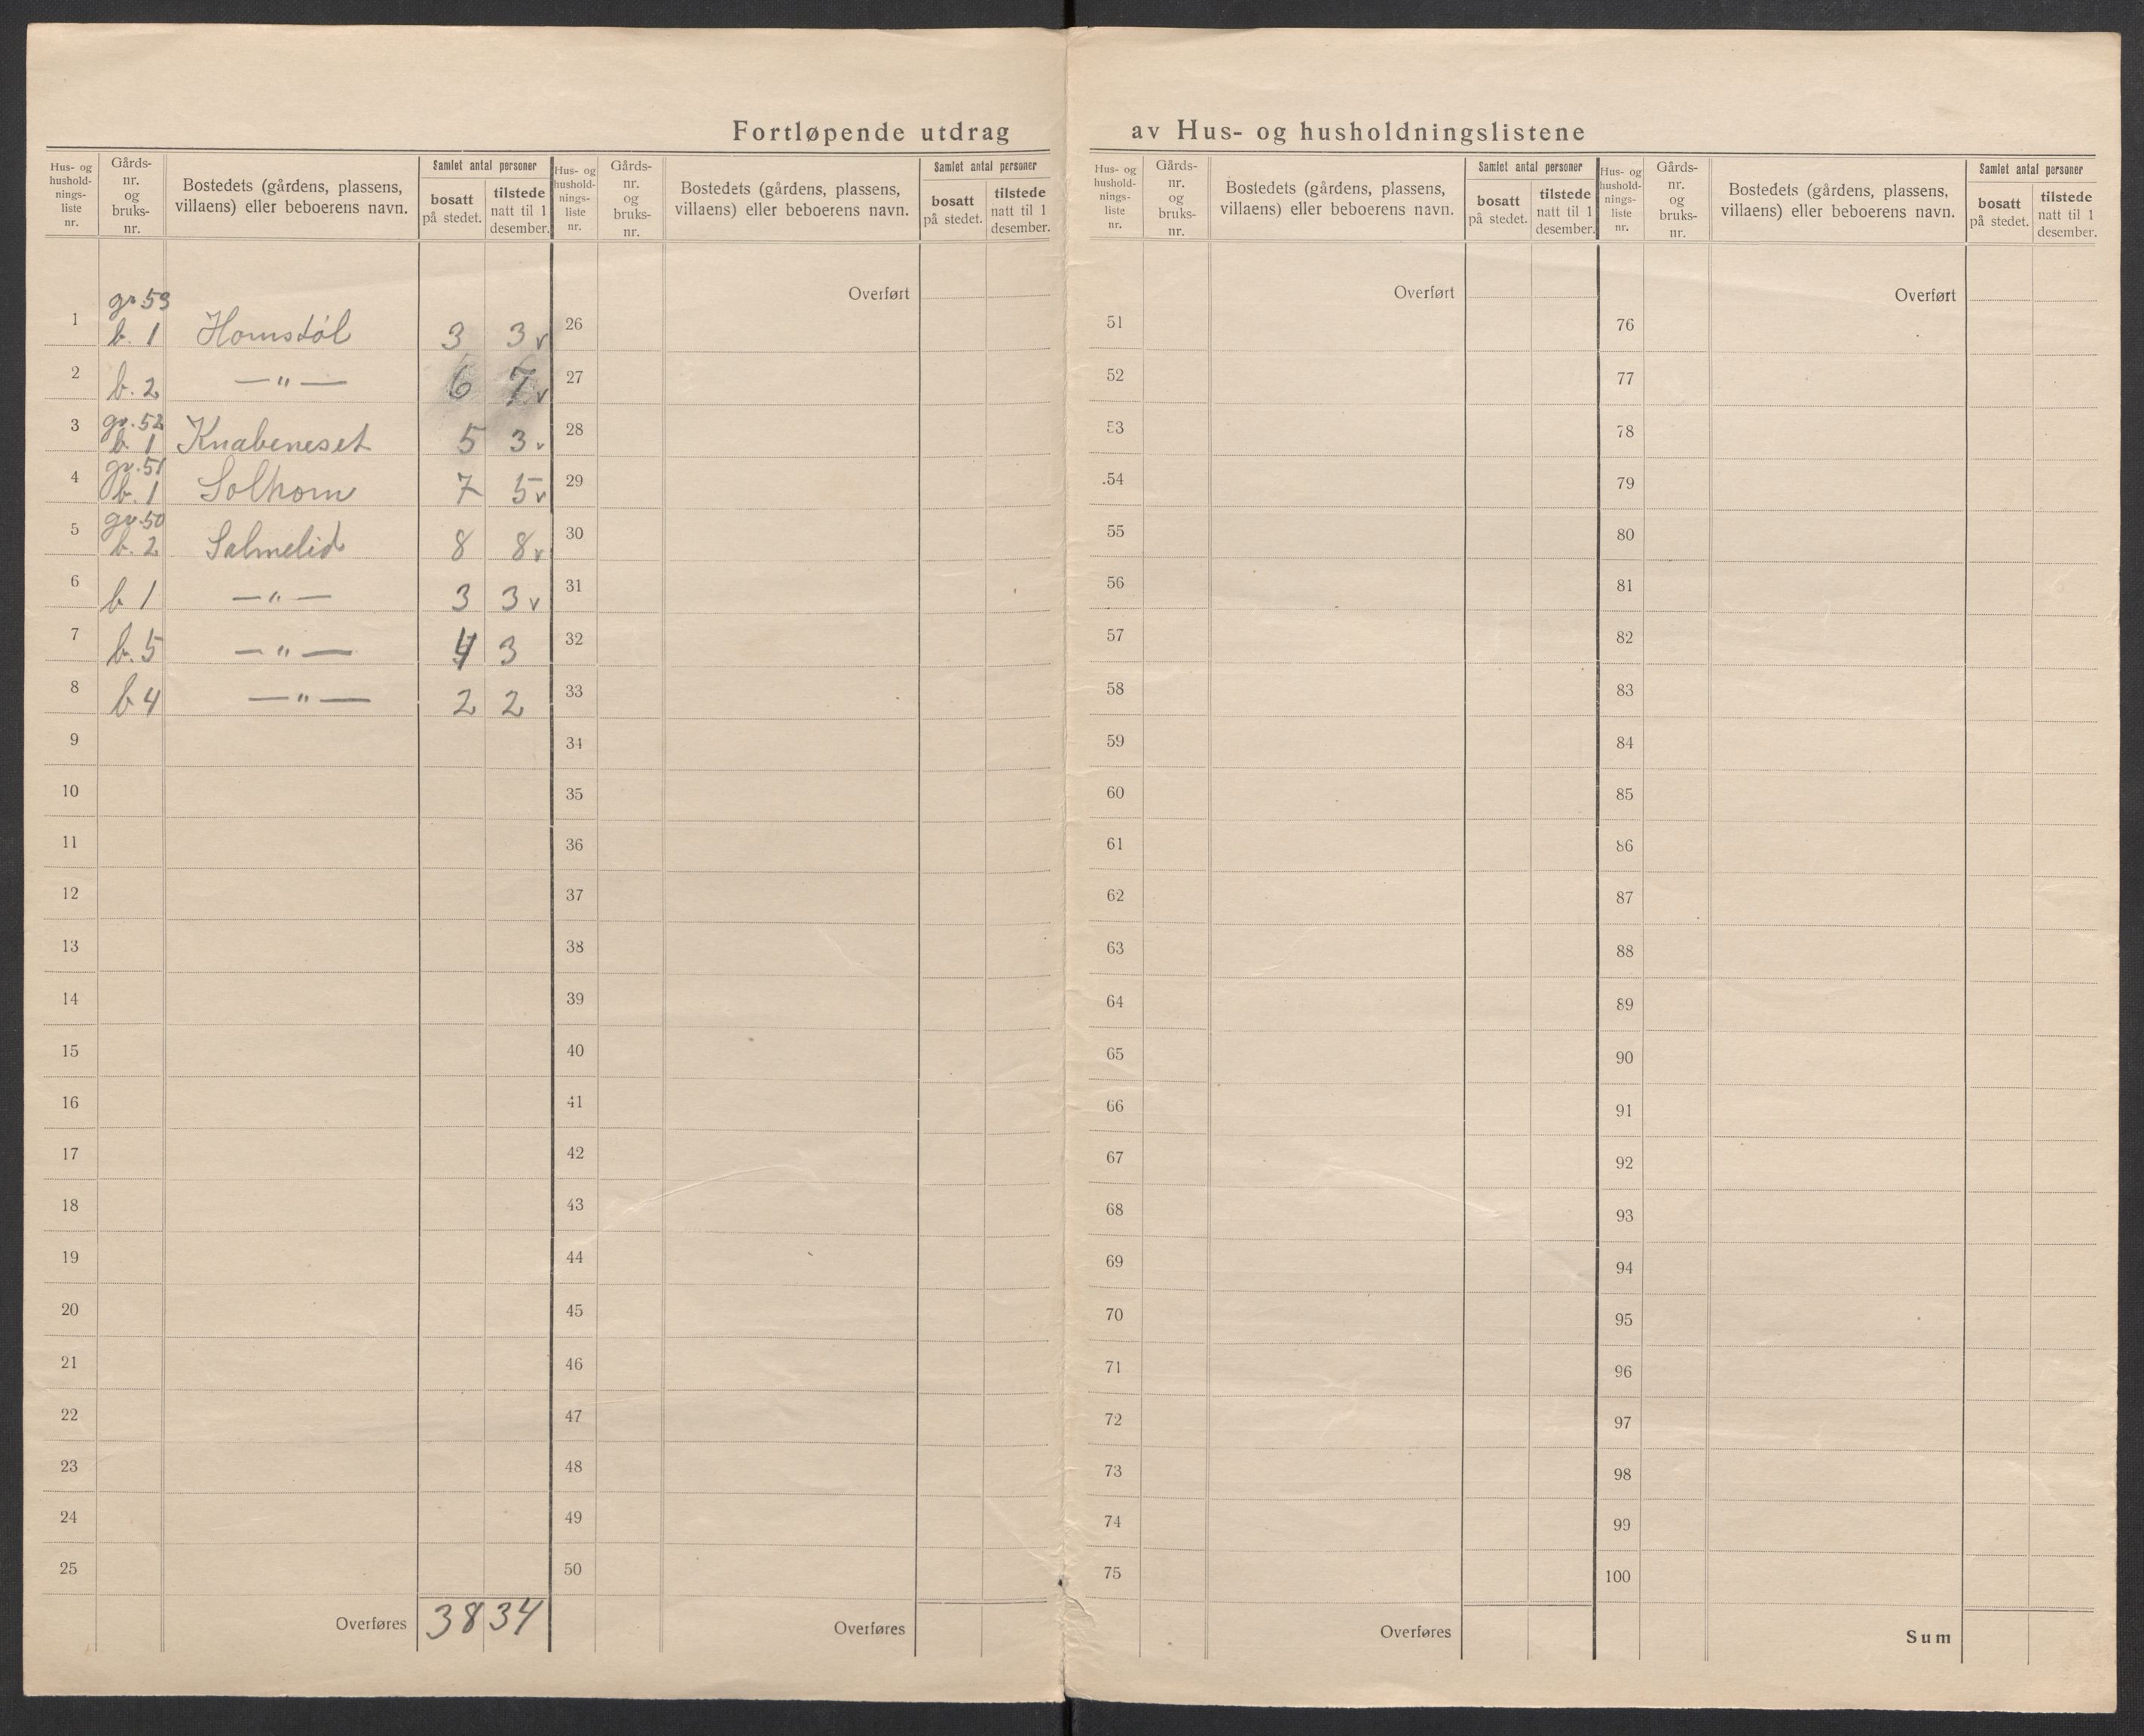 Fortløpende utdrag av Hus- og husholdningslistene
Hus- og hushold-nings-liste nr. Gårds-nr. og bruks-nr. Bostedets (gårdens, plassens, villaens) eller beboerens navn. Samlet antal personer bosatt på stedet. tilstede natt til 1 desember.
Hus- og hushold-nings-liste nr. Gårds-nr. og bruks-nr. Bostedets (gårdens, plassens, villaens) eller beboerens navn. Samlet antal personer bosatt på stedet. tilstede natt til 1 desember.
Hus- og hushold-nings-liste nr. Gårds-nr. og bruks-nr. Bostedets (gårdens, plassens, villaens) eller beboerens navn. Samlet antal personer bosatt på stedet. tilstede natt til 1 desember.
Hus- og hushold-nings-liste nr. Gårds-nr. og bruks-nr. Bostedets (gårdens, plassens, villaens) eller beboerens navn. Samlet antal personer bosatt på stedet. tilstede natt til 1 desember.
gr. 53
1 b. 1 Homstøl 3 3 v
2 b. 2 — " — 6 7 v
gr. 52
3 b. 1 Knabeneset 5 3 v
gr. 51
4 b. 1 Solhom 7 5 v
gr. 50
5 b. 2 Salmelid 8 8 v
6 b 1 — " — 3 3 v
7 b. 5 — " — 4 3
8 b 4 — " — 2 2
9
10
11
12
13
14
15
16
17
18
19
20
21
22
23
24
25
Overføres 38 34
Overført
26
27
28
29
30
31
32
33
34
35
36
37
38
39
40
41
42
43
44
45
46
47
48
49
50
Overføres
Overført
51
52
53
54
55
56
57
58
59
60
61
62
63
64
65
66
67
68
69
70
71
72
73
74
75
Overføres
Overført
76
77
78
79
80
81
82
83
84
85
86
87
88
89
90
91
92
93
94
95
96
97
98
99
100
Sum